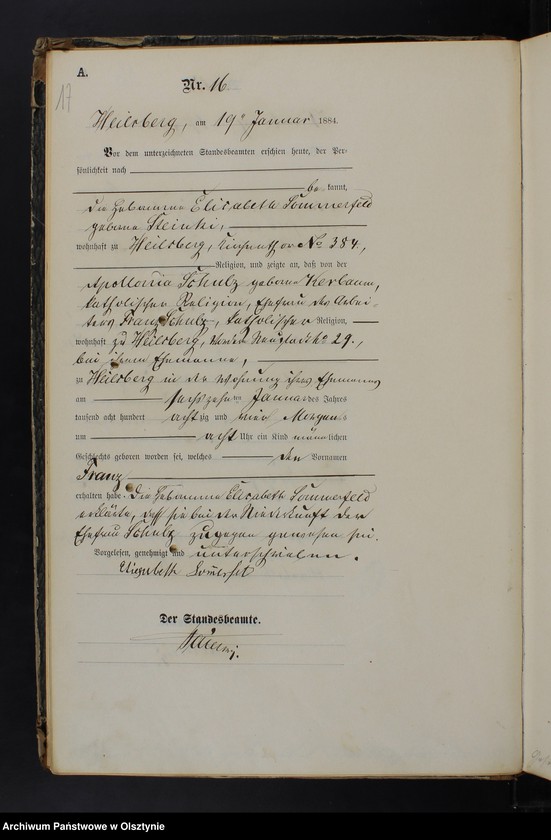 A.
17
Nr. 16.
Heilsberg, am 19ten Januar 1884.
Vor dem unterzeichneten Standesbeamten erschien heute, der Per-
sönlichkeit nach
be kannt,
die Hebamme Elisabeth Sommerfeld
geborne Steinki,
wohnhaft zu Heilsberg, No 384,
Religion, und zeigte an, daß von der
Apollonia Schulz geborne Kerbaum,
katholischer Religion, Ehefrau des Arbei-
ters Franz Schulz, katholischer Religion,
wohnhaft zu Heilsberg, No 29.,
bei ihrem Ehemanne,
zu Heilsberg in der Wohnung ihres Ehemannes
am sechszehnten Januar des Jahres
tausend acht hundert acht zig und vier Morgens
um acht Uhr ein Kind männlichen
Geschlechts geboren worden sei, welches den Vornamen
Franz
erhalten habe. Die Hebamme Elisabeth Sommerfeld
erklärte, daß sie bei der Niederkunft der
Ehefrau Schulz zugegen gewesen sei.
Vorgelesen, genehmigt und unterschrieben.
Der Standesbeamte.
Archiwum Państwowe w Olsztynie